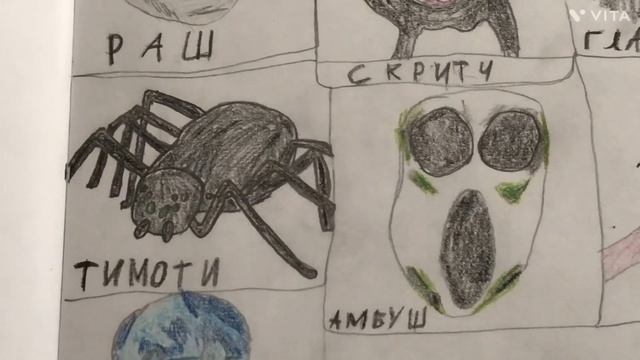 VITA
РАШ
СКРИТЧ
ТИМОТИ
АМБУШ